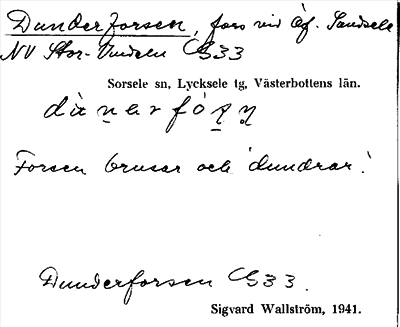 Dunderforsen, fors vid Öf. Sandsele
NV Stor-Vindeln C33
Sorsele sn, Lycksele tg, Västerbottens län.
Forsen brusar och 'dundrar'.
Dunderforsen C33.
Sigvard Wallström, 1941.